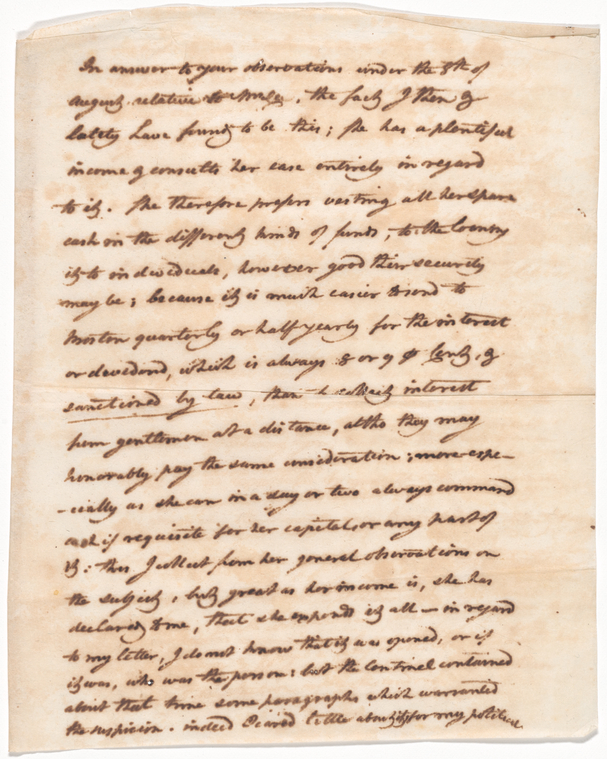 In answer to your observations under the 8th of
August relative to , the fact I then &
lately have found to be this; she has a plentiful
income & consults her ease entirely in regard
to it. She therefore prefers vesting all her spare
cash in the different kinds of funds, to the loaning
it to individuals, however good their security
may be; because it is much easier to send to
Boston quarterly or half yearly for the interest
or dividend, which is always 8 or 9 ⅌ Cent, &
sanctioned by law, than to collect interest
from gentlemen at a distance, altho they may
honorably pay the same consideration; more espe-
-cially as she can in a day or two always command
cash if requisite for her capital, or any part of
it: this I collect from her general observations on
the subject, but great as her income is, she has
declared to me, that she expends it all — in regard
to my letter, I do not know that it was opened, or if
it was, who was the person: but the Centinel contained
about that time some paragraphs which warranted
the suspicion. indeed I cared little about it, for my political